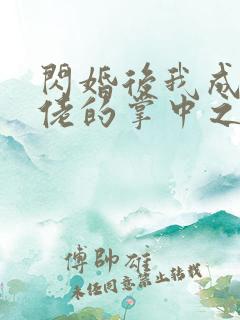 閃婚後我成
佬的掌中之
傅帥雄
未経同意禁止轉載